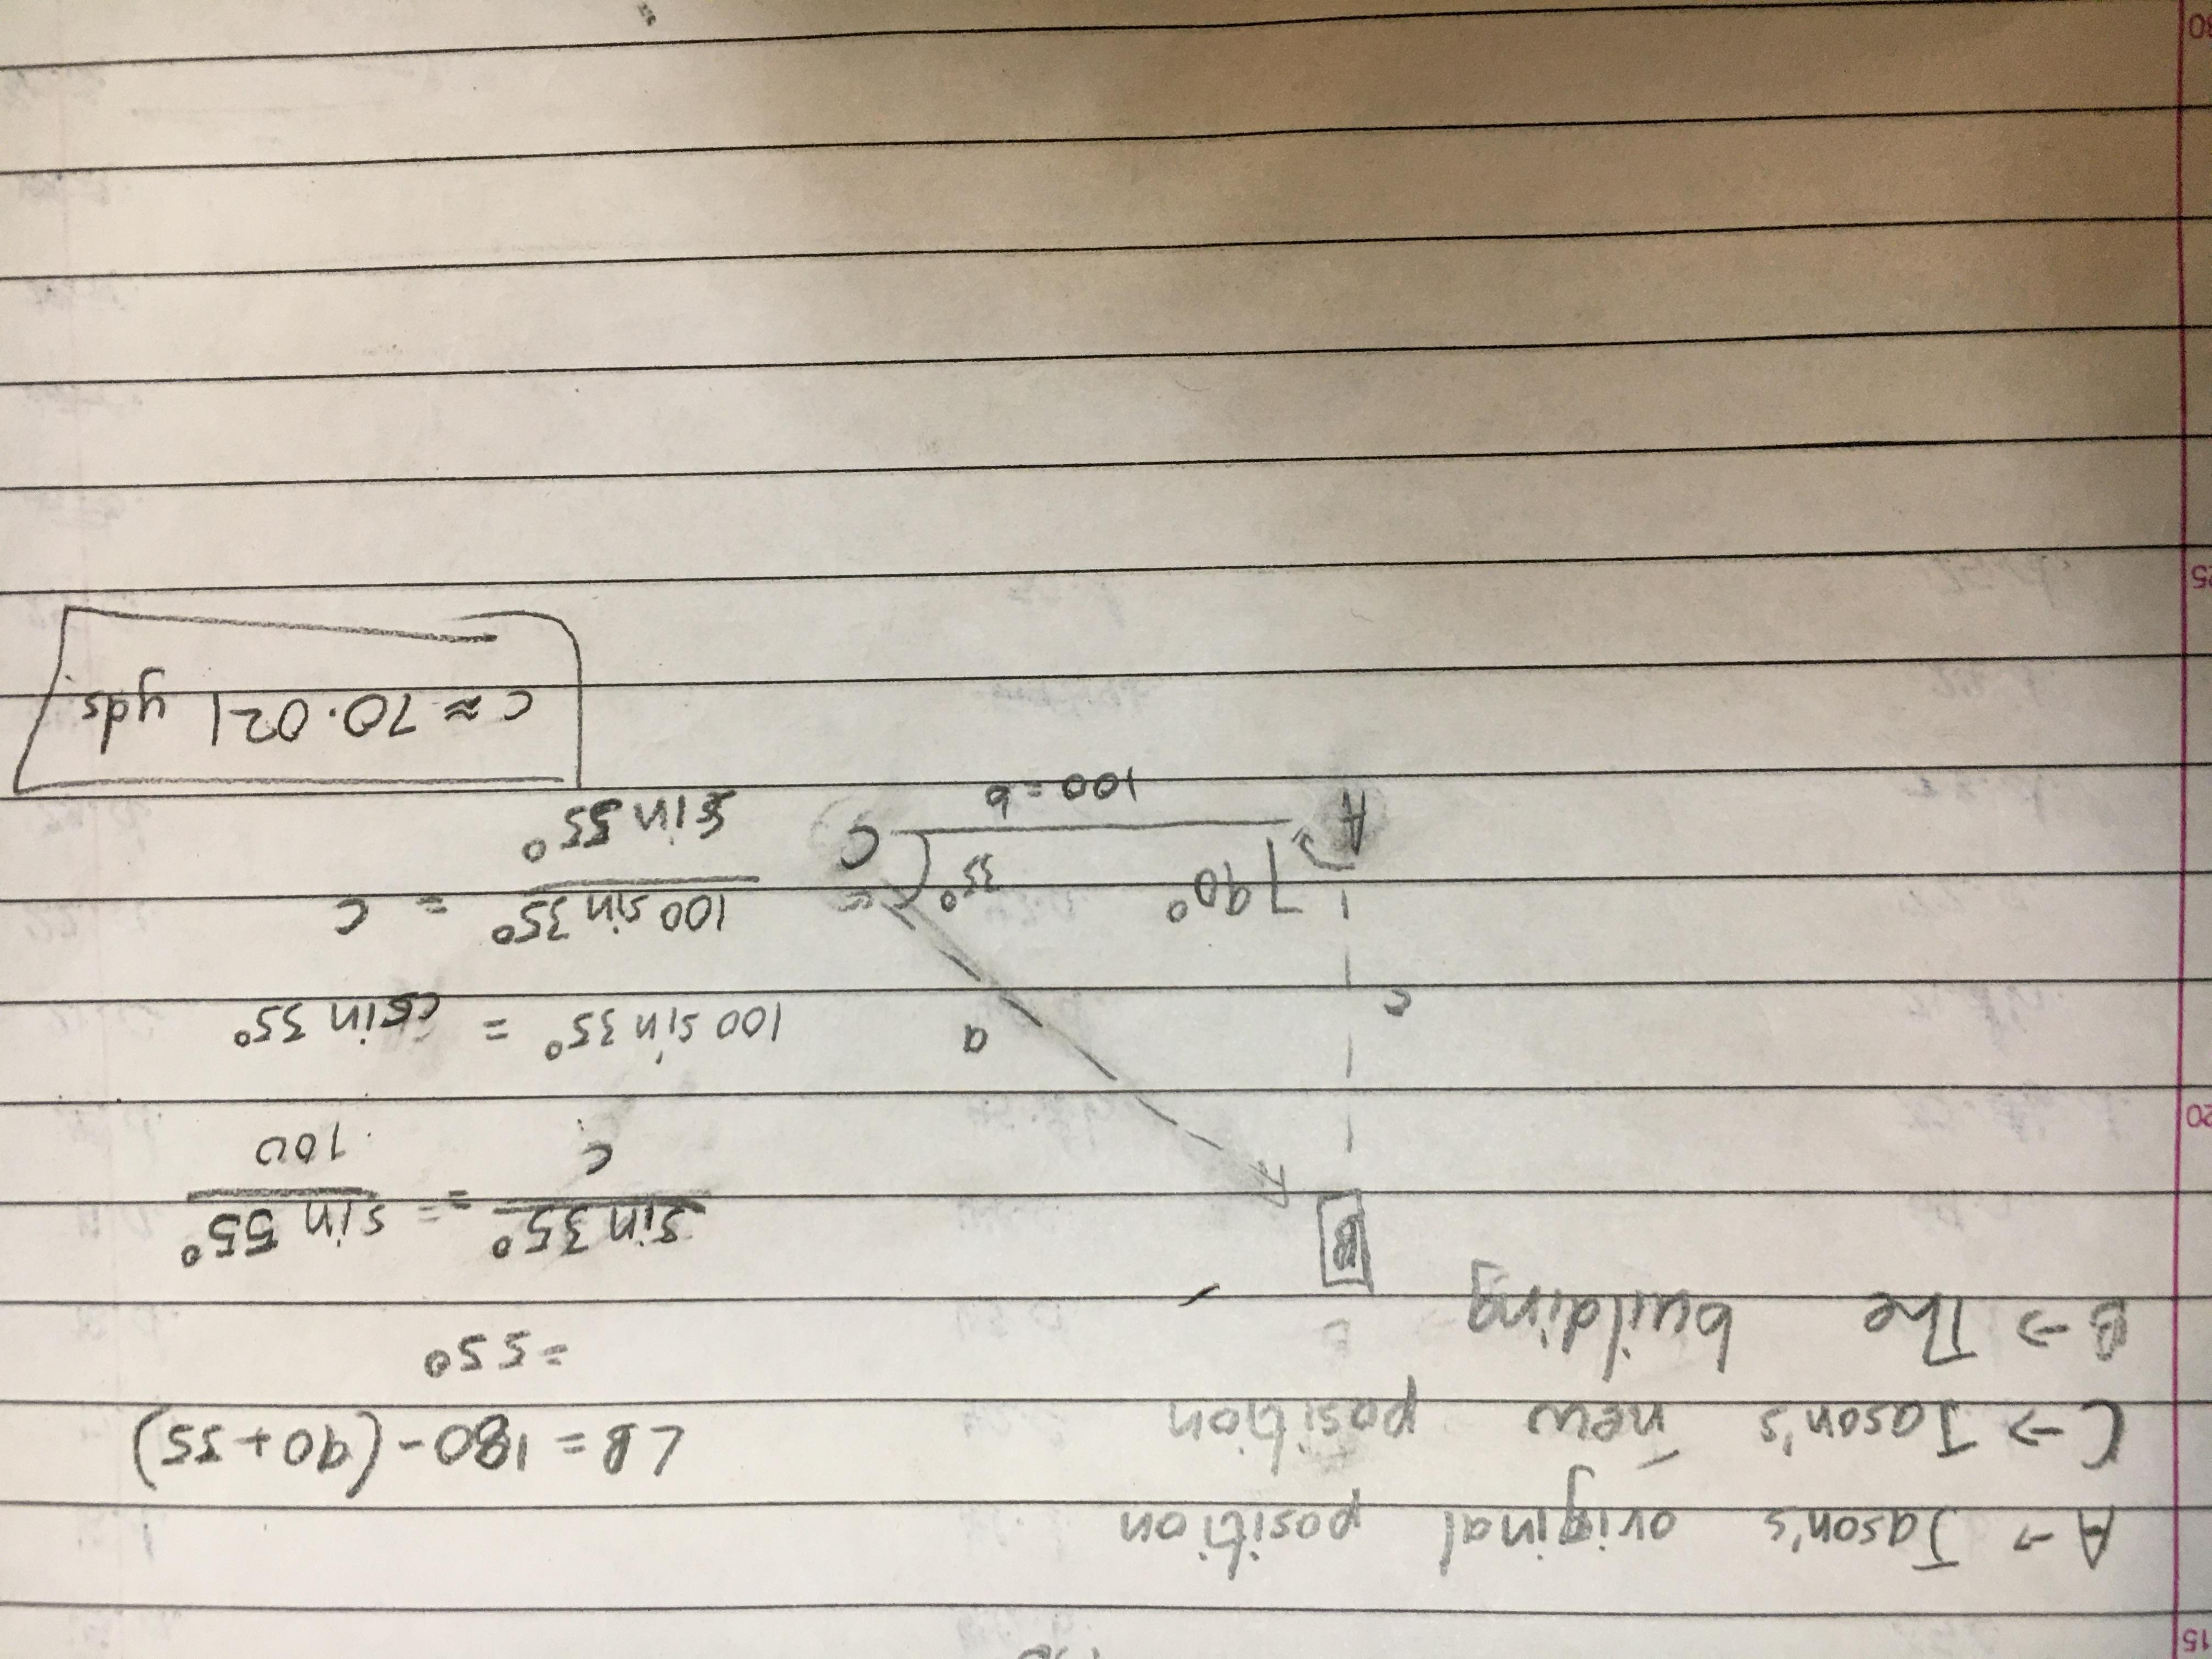 A → Jason's original position
C → Jason's new position
B → The building
B
c
a
90°
35°
A
C
100 = b
∠B = 180 - (90 + 35)
= 55°
sin 35° / c = sin 55° / 100
100 sin 35° = c sin 35°
100 sin 35° / sin 55° = c
c ≈ 70.021 yds.
15
20
25
30